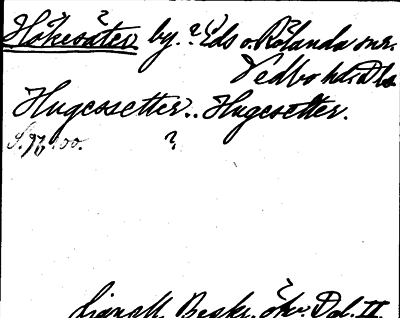 Hökesäter by. ? Eds o. Rölanda snr.
Vedbo hd Dls
Hugessetter.. Hugesetter.
?
Lignell, Beskr. öfv. Dal. II.